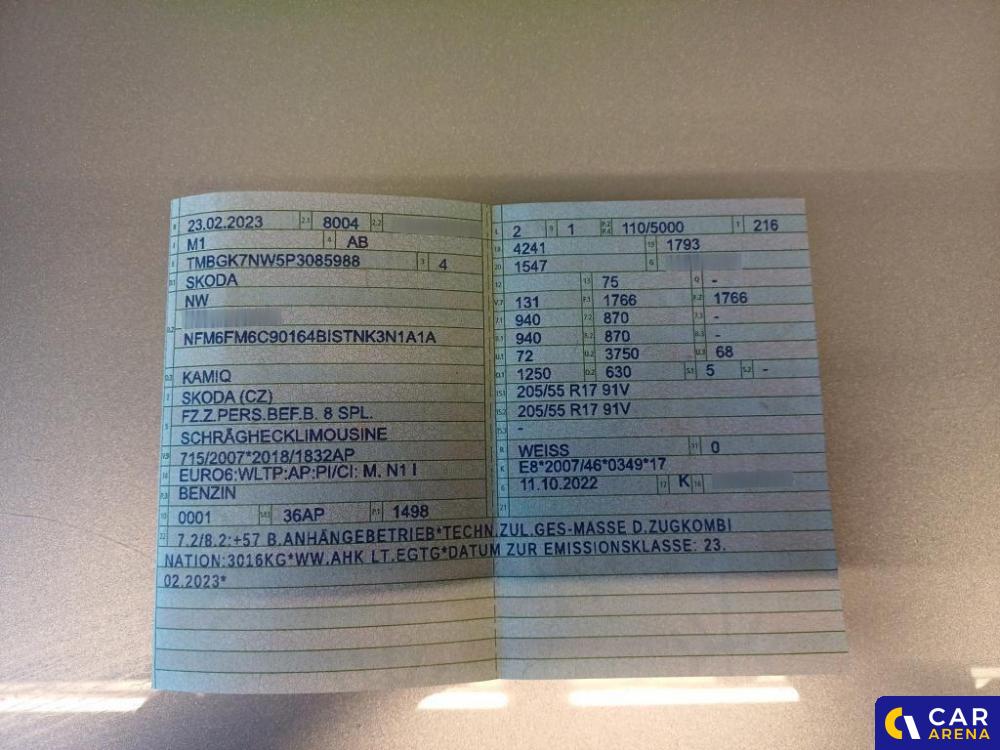 B 23.02.2023 2.1 8004 2.2
J M1 4 AB
E TMBGK7NW5P3085988 3 4
D.1 SKODA
NW
D.2
NFM6FM6C90164BISTNK3N1A1A
D.3 KAMIQ
2 SKODA (CZ)
5 FZ.Z.PERS.BEF.B. 8 SPL.
SCHRÄGHECKLIMOUSINE
V.9 715/2007*2018/1832AP
14 EURO6:WLTP:AP:PI/CI: M, N1 I
P.3 BENZIN
10 0001 14.1 36AP P.1 1498
L 2 9 1 P.2 P.4 110/5000 T 216
18 4241 19 1793
20 1547 G
12 13 75 Q -
V.7 131 F.1 1766 F.2 1766
7.1 940 7.2 870 7.3 -
8.1 940 8.2 870 8.3 -
U.1 72 U.2 3750 U.3 68
O.1 1250 O.2 630 S.1 5 S.2 -
15.1 205/55 R17 91V
15.2 205/55 R17 91V
15.3 -
R WEISS 11 0
K E8*2007/46*0349*17
6 11.10.2022 17 K 16
21
22 7.2/8.2:+57 B.ANHÄNGEBETRIEB*TECHN.ZUL.GES-MASSE D.ZUGKOMBI
NATION:3016KG*WW.AHK LT.EGTG*DATUM ZUR EMISSIONSKLASSE: 23.
02.2023*
CAR
ARENA